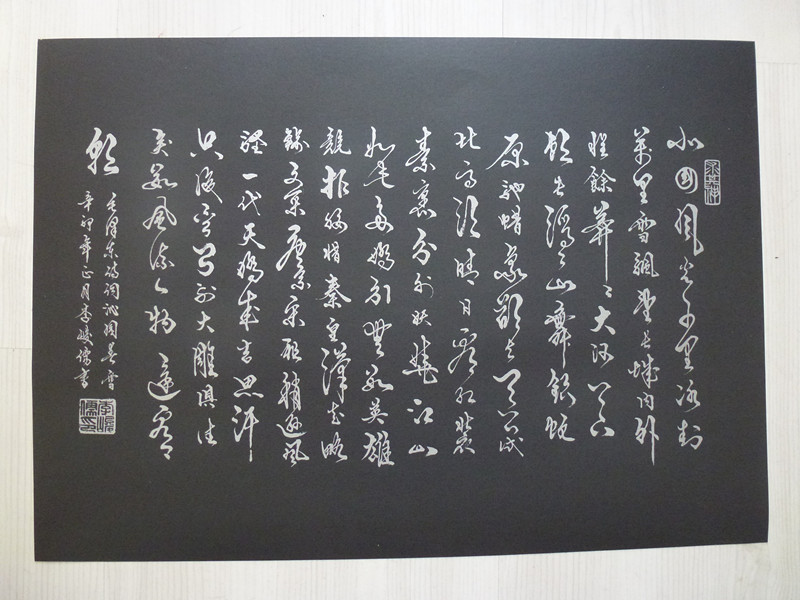 北國風光千里冰封
萬里雪飄望長城內外
惟餘莽々大河上下
頓失滔々山舞銀蛇
原馳蠟象欲与天公試
比高須晴日看紅裝
素裹分外妖嬈江山
如此多嬌引無數英雄
競折腰惜秦皇漢武略
輸文采唐宗宋祖稍遜風
騷一代天驕成吉思汗
只識彎弓射大雕俱往
矣數風流人物還看今
朝
毛澤東詩詞沁園春雪
辛卯年正月李峻儒書